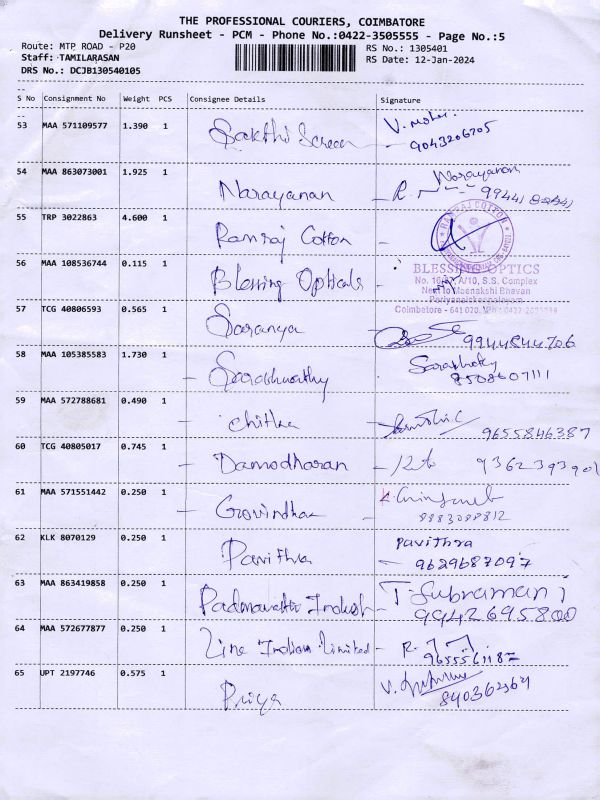 THE PROFESSIONAL COURIERS, COIMBATORE
Delivery Runsheet - PCM - Phone No.:0422-3505555 - Page No.:5
Route: MTP ROAD - P20
RS No.: 1305401
Staff: TAMILARASAN
RS Date: 12-Jan-2024
DRS No.: DCJB130540105
S No Consignment No Weight PCS Consignee Details Signature
53 MAA 571109577 1.390 1 Sakthi Screen
9043206705
54 MAA 863073001 1.925 1 Narayanan Narayanan
55 TRP 3022863 4.600 1 Ramraj Cotton
RAMRAJ COTTON
56 MAA 108536744 0.115 1 Blessing Opticals
BLESSING OPTICS
S.S. Complex
Next to Meenakshi Bhavan
Periyanaickenpalayam
Coimbatore - 641 020.
57 TCG 40806593 0.565 1 Saranya
9944844706
58 MAA 105385583 1.730 1 Sarashwathy
8508607111
59 MAA 572788681 0.490 1 Chithra
9655846387
60 TCG 40805017 0.745 1 Damodharan
9362393901
61 MAA 571551442 0.250 1 Govindhan
62 KLK 8070129 0.250 1 Pavithra Pavithra
9629687097
63 MAA 863419858 0.250 1 T. Subramani
9942695800
64 MAA 572677877 0.250 1 Indian Limited
65 UPT 2197746 0.575 1 Priya